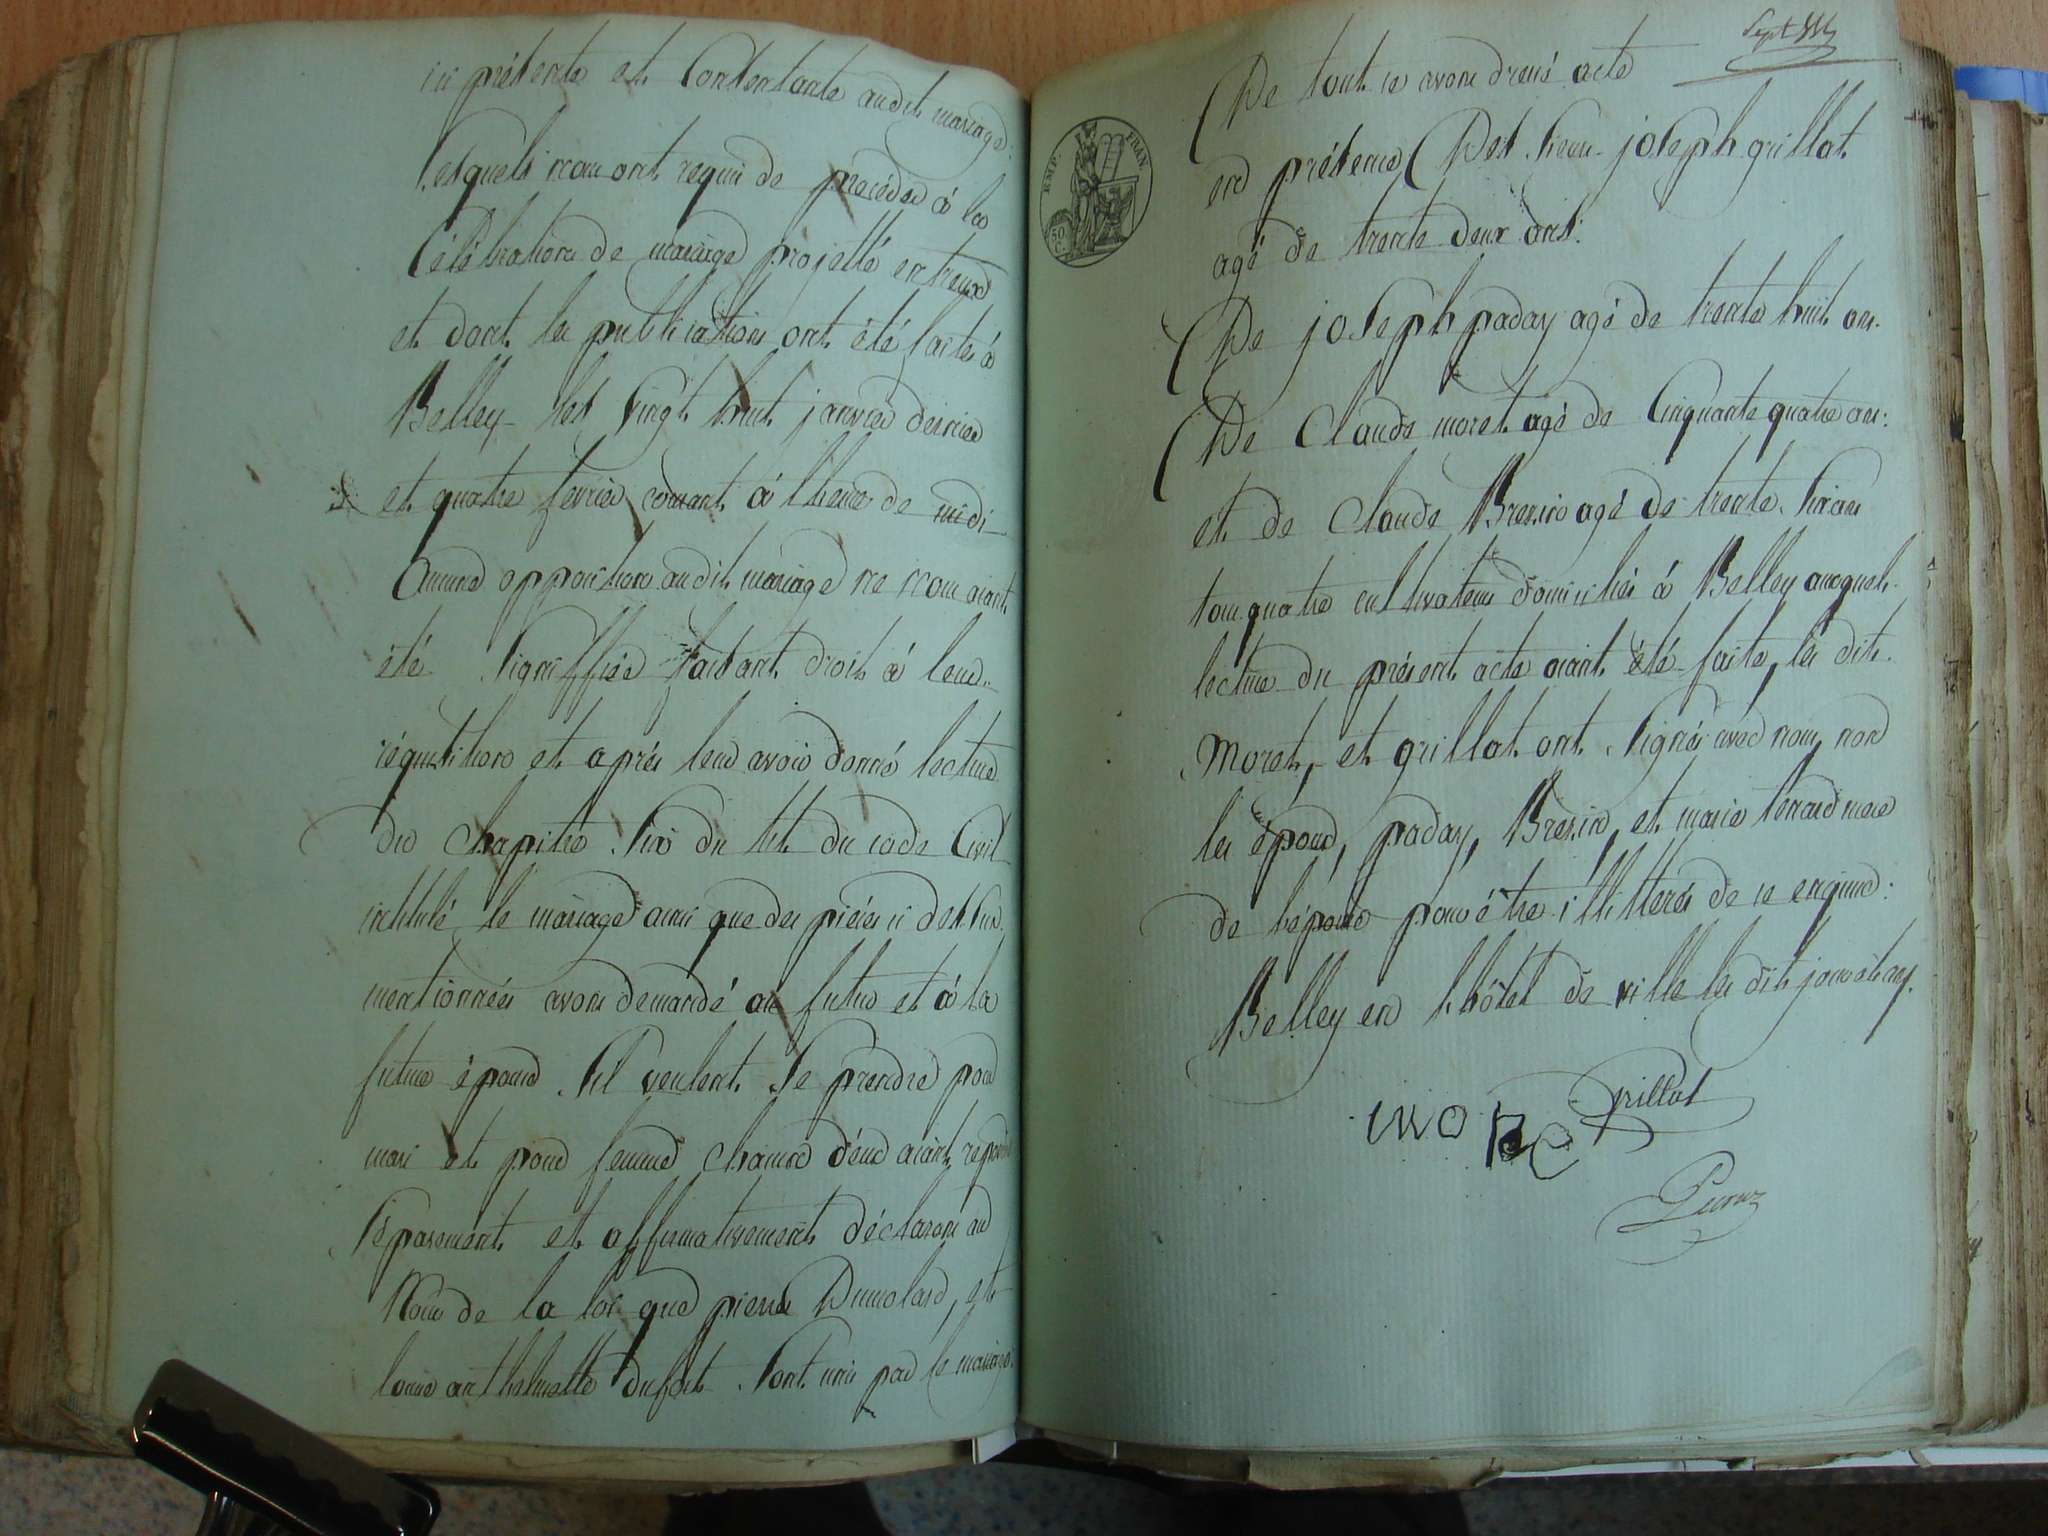 ici présente et Consentante audit mariage:
Lesquels nous ont requis de procéder à la
Célébration de mariage projetté entreux
et dont les publications ont été faites à
Belley les vingt huit janvier dernier
et quatre fevrier courant à l'heure de midi
Aucune opposition audit mariage ne nous aiant
été Signiffiée faisant droit à leur
réquisition et après leur avoir donné lecture
du chapitre Six du tit. du code Civil
intitulé le mariage ainsi que des pièces ci dessus
mentionnées avons demandé au futur et à la
future épouse S'il veulent Se prendre pour
mari et pour femme chacun d'eux aiant repondu
Séparement et affirmativement déclarons au
Nom de la loi que pierre Dumolard, et
louise anthelmette dufort Sont unis par le mariage
Sept
De tout ce avons dressé acte
en présence Des Sieurs joseph grillat
agé de trente deux ans:
De joseph paday agé de trente huit ans.
De Claude moret agé de Cinquante quatre ans:
et de Claude Bresin agé de trente Six ans
tous quatre cultivateurs domiciliés à Belley auxquels
lecture du présent acte aiant été faite, les dits
Moret, et grillat ont Signés avec nous, non
les époux, paday, Bresin, et marie tenard mere
de l'épouse pour être illitterés de ce enquis:
Belley en l'hôtel de ville les dits jour et an.
EMP. FRAN.
50 C.
Grillat
moret